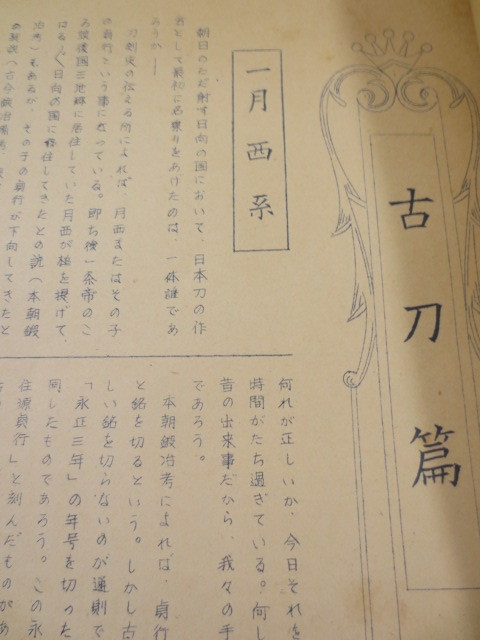 古刀篇
一月西系
朝日のただ射す日向の国において、日本刀の作
者として最初に名乗りをあげたのは、一体誰であ
ろうか――
刀剣史の伝える所によれば、月西またはその子
の貞行という事になっている。即ち後一条帝のこ
ろ筑後国三池郷に居住していた月西が槌を提げて、
はるばる日向の国に移住してきたとの説(本朝鍛
冶考)もあるが、その子の貞行が下向してきたと
何れが正しいか、今日それを
時間がたち過ぎている。何し
昔の出来事だから、我々の手
であろう。
本朝鍛冶考によれば、貞行
と銘を切るという。しかし古
しい銘を切らないのが通則で
「永正三年」の年号を切った
同したものであろう。この永
住源貞行」と刻んだものがあ